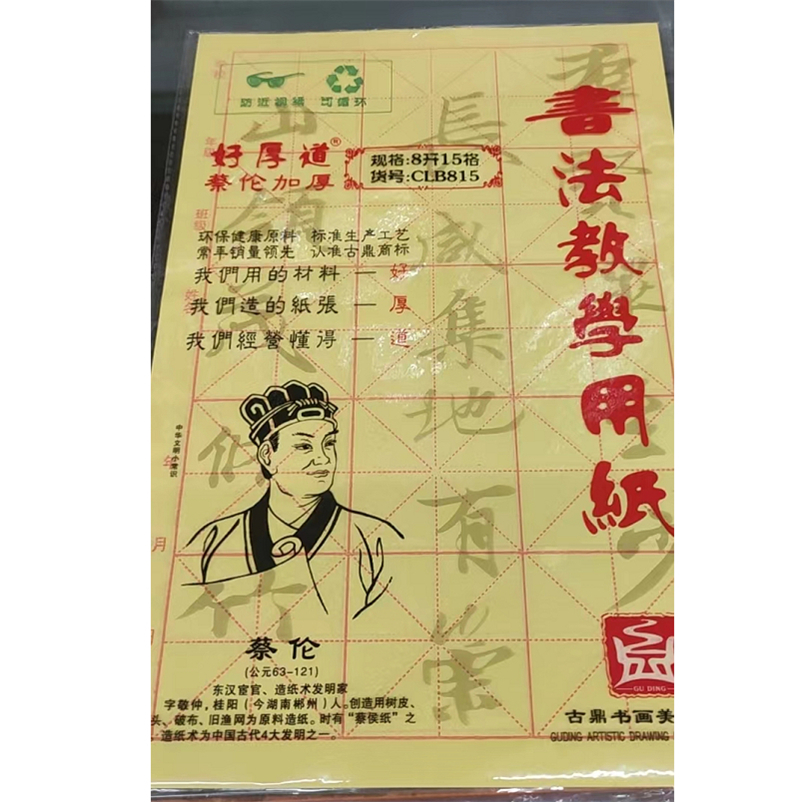 防近视镜 可循环
好厚道®
蔡伦加厚
规格:8开15格
货号:CLB815
书法教學用紙
环保健康原料 标准生产工艺
常年销量领先 认准古鼎商标
我們用的材料 — 好
我們造的紙張 — 厚
我們經營懂得 — 道
中华文明小常识
年级
班级
姓名
年
月
日
長
咸
集
地
有
崇
山
領
茂
修
竹
蔡伦
(公元63-121)
东汉宦官、造纸术发明家
字敬仲,桂阳(今湖南郴州)人。创造用树皮、
头、破布、旧渔网为原料造纸。时有“蔡侯纸”之
造纸术为中国古代4大发明之一。
GU DING
古鼎书画美
GUDING ARTISTIC DRAWING